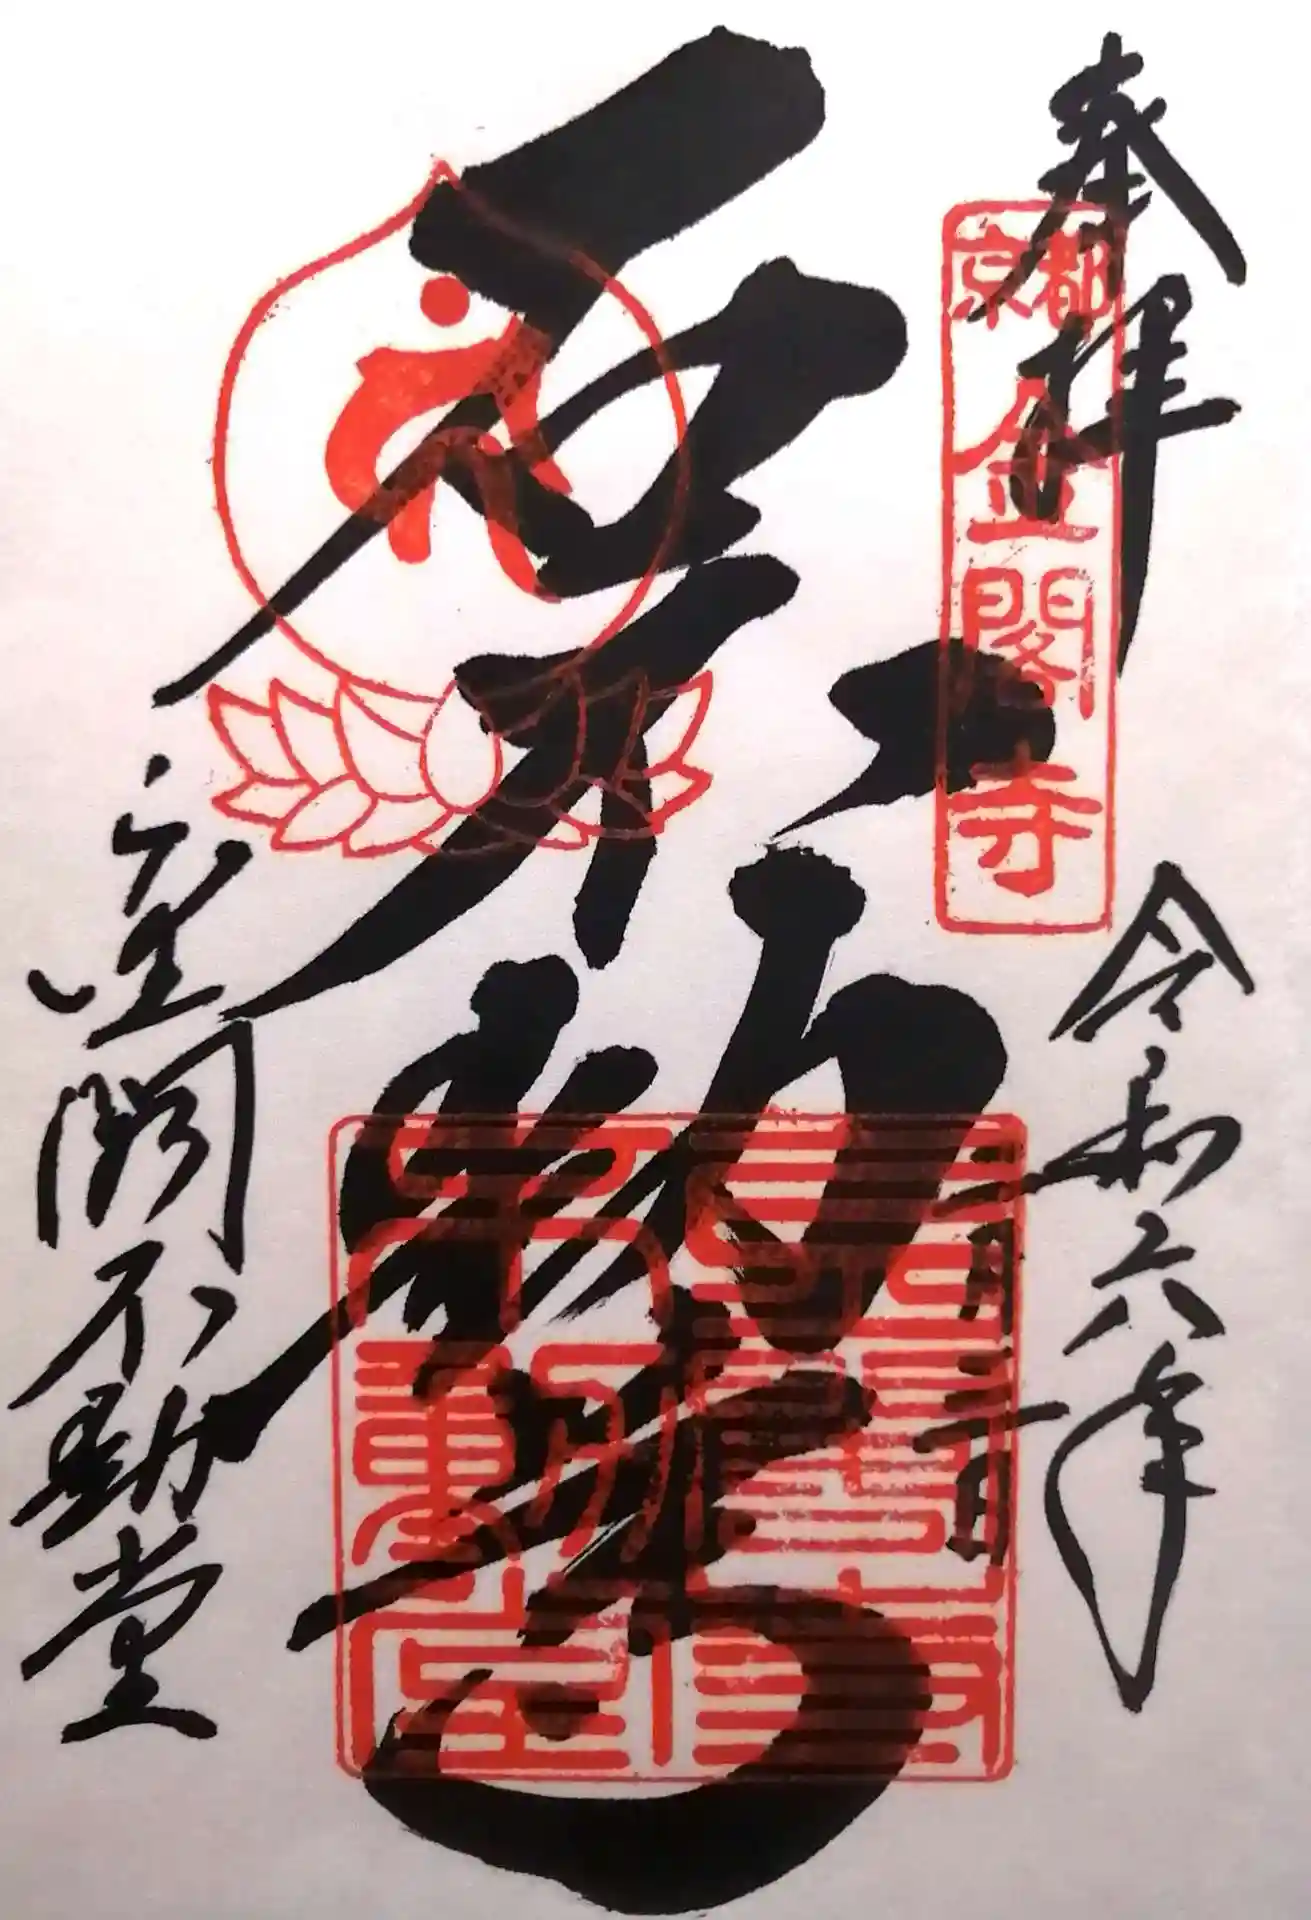 奉拝
京都
金閣寺
令和六年
石不動尊
金閣不動堂